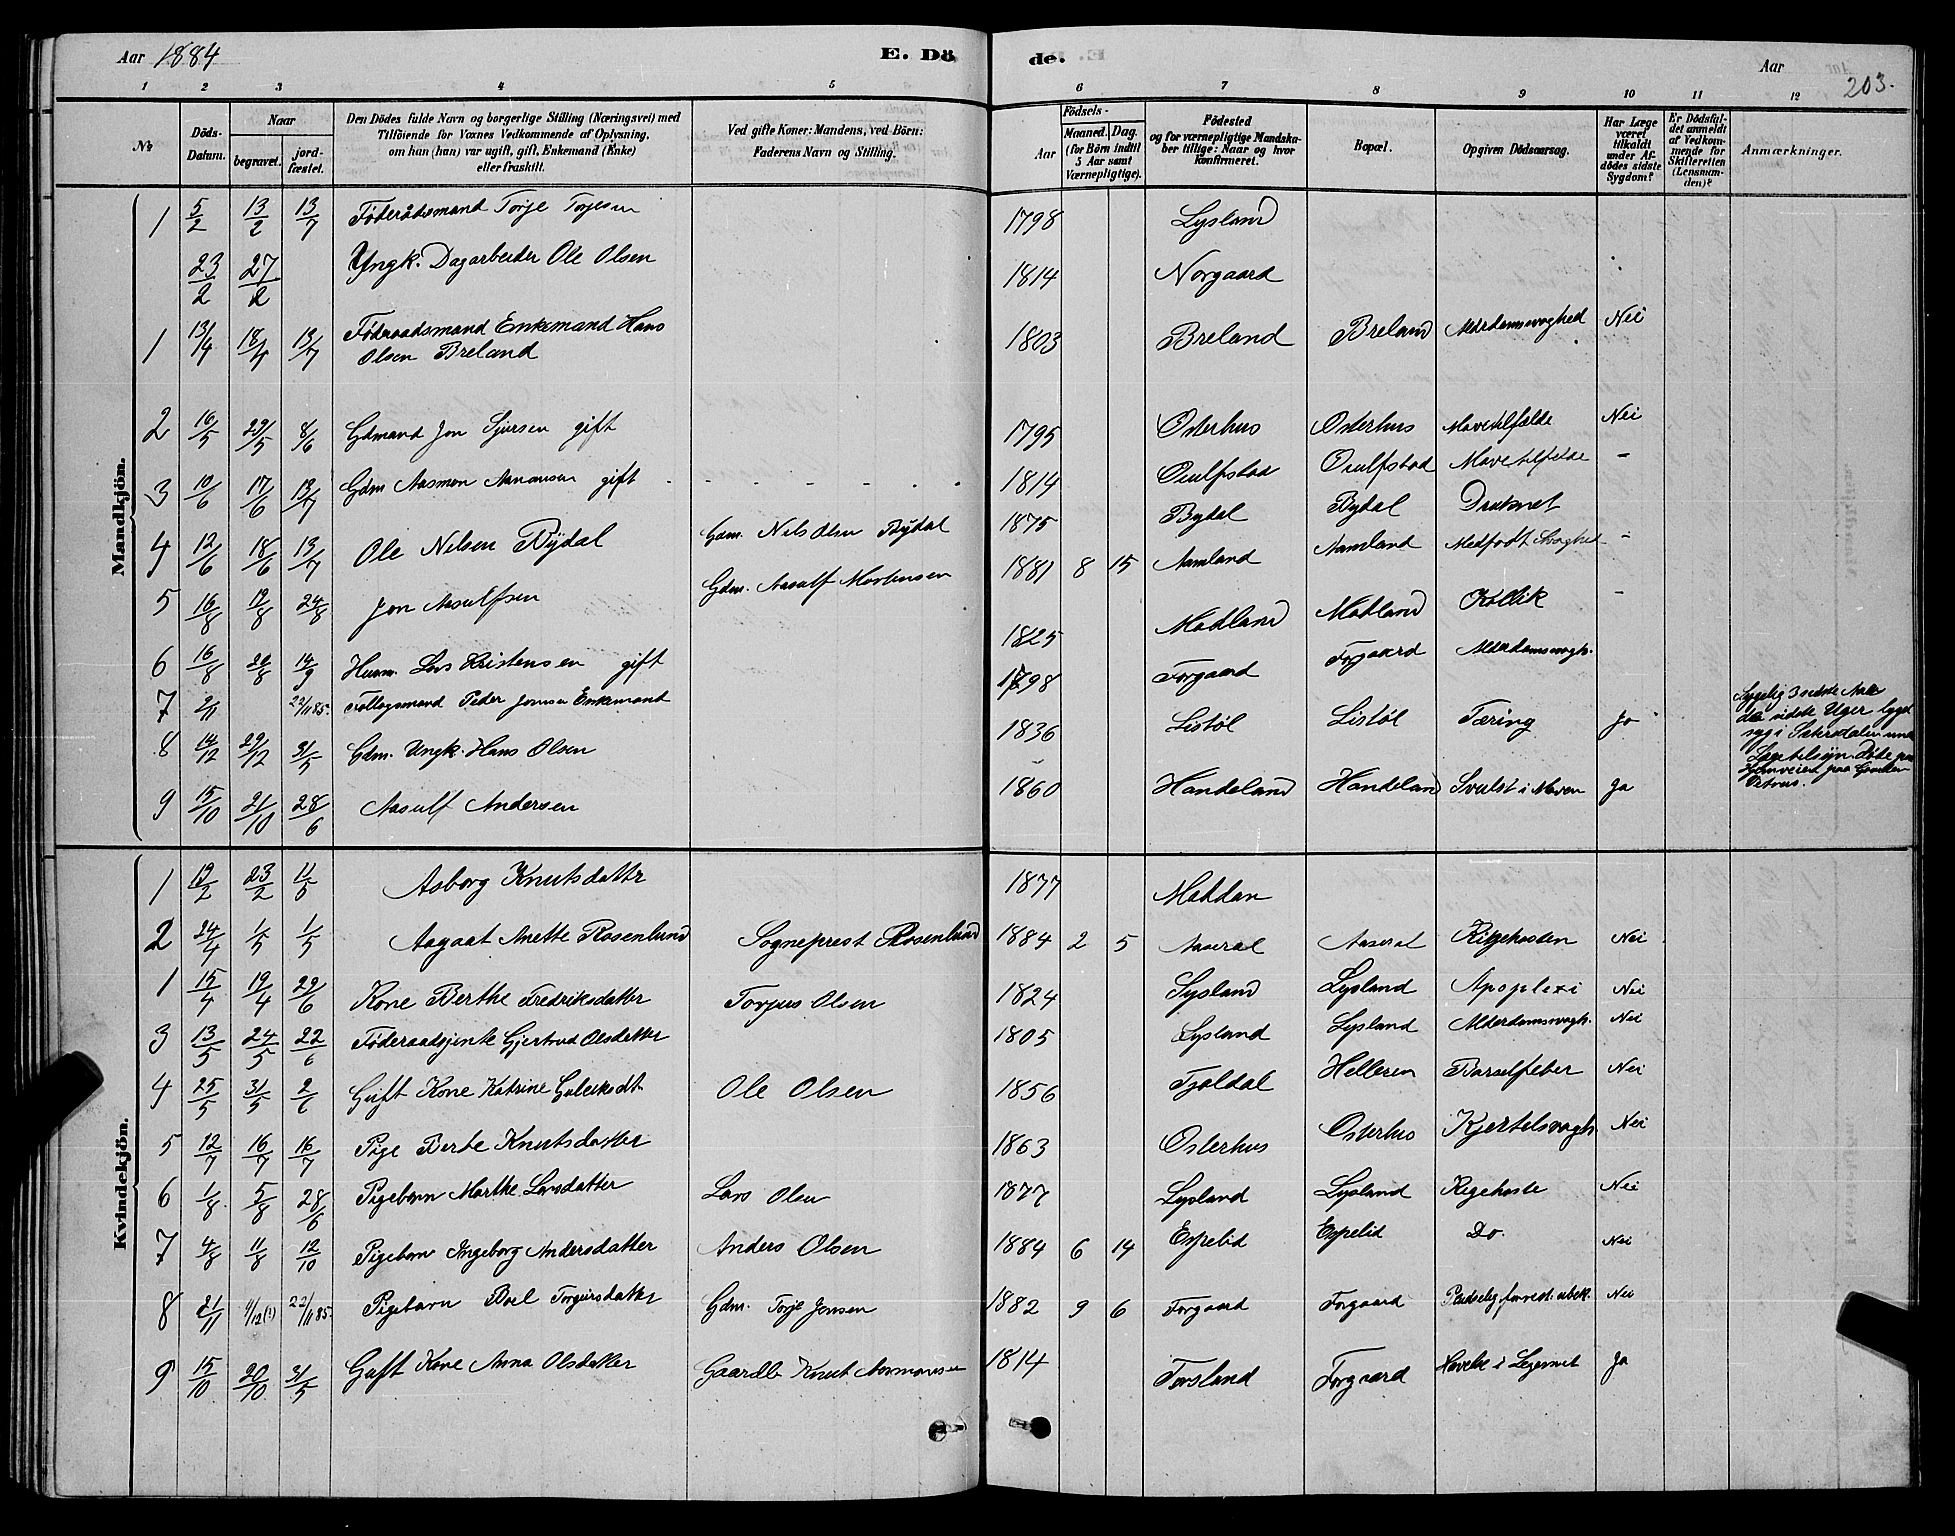 Aar 1884
E. Dö
de.
Aar
203.
1 2 3 4 5 6 7 8 9 10 11 12
No
Döds-Datum.
Naar
begravet.
jordfæstet.
Den Dödes fulde Navn og borgerlige Stilling (Næringsvei) med
Tilföiende for Voxnes Vedkommende af Oplysning,
om han (hun) var ugift, gift, Enkemand (Enke)
eller fraskilt.
Ved gifte Koner: Mandens, ved Börn:
Faderens Navn og Stilling.
Födsels-
Aar
Maaned. Dag.
(for Börn indtil
5 Aar samt
Værnepligtige).
Födested
og for værnepligtige Mandska-
ber tillige: Naar og hvor
konfirmeret.
Bopæl.
Opgiven Dödsaarsag.
Har Læge
været
tilkaldt
under Af-
dödes sidste
Sygdom?
Er Dödsfal-
det anmeldt
af Vedkom-
mende for
Skifteretten
(Lensman-
den)?
Anmærkninger.
Mandkjön.
1 5/2 13/2 13/7 Föderådsmand Torje Torjesen 1798 Lysland
23/2 27/2 Yngk. Dagarbeider Ole Olsen 1814 Norgaard
1 13/4 18/4 13/7 Föderaadsmand Enkemand Hans
Olsen Breland 1803 Breland Breland Alderdomssvaghed Nei
2 16/5 29/5 8/6 Gdmand Jon Sjursen gift 1795 Osterhus Osterhus Mavetilfælde Nei
3 10/6 17/6 13/7 Gdm Aasmon Aanonsen gift 1814 Oiulfstad Oiulfstad Mavetilfelde -
4 12/6 18/6 13/7 Ole Nilsen Bydal Gdm. Nils Olsen Bydal 1875 Bydal Bydal Druknet
5 16/8 19/8 24/8 Jon Aasulfsen Gdm. Aasulf Mortensen 1881 8 15 Aamland Aamland Medfödt Svaghed -
6 16/8 20/8 14/9 Husm. Lars Kristensen gift 1825 Madland Madland Kollik -
7 2/11 22/11 85. Follogsmand Peder Jonsen Enkemand 1798 Forgaard Forgaard Alderdomssvagh.
8 14/12 29/12 31/5 Gdm. Ungk. Hans Olsen 1836 Listöl Listöl Tæring Ja
Sygelig 3 sidste Aar
de sidste Uger lygd
syg i Sætersdalen under
Lægetilsyn. Döde paa
Hjemveien paa Gaarden
9 15/10 21/10 28/6 Aasulf Andersen 1860 Handeland Handeland Svulst i Maven Ja
Kvindekjön.
1 19/2 23/2 11/5 Asborg Knutsdatter 1877 Maddan
2 24/4 1/5 1/5 Aagaat Anette Rosenlund Sogneprest Rosenlund 1884 2 5 Aaseral Aaseral Kighosten Nei
1 15/4 19/4 29/6 Kone Berthe Fredriksdatter Torjus Olsen 1824 Lysland Lysland Apoplexi Nei
3 13/5 24/5 22/6 Föderaadsjente Gjertrud Olsdatter 1805 Lysland Lysland Alderdomssvagh. Nei
4 25/5 31/5 2/6 Gift Kone Katrine Guleiksdt Ole Olsen 1856 Fjoldal Helleren Barselfeber Nei
5 12/7 16/7 16/7 Pige Berte Knutsdatter 1863 Osterhus Osterhus Kjertelsvagh. Nei
6 1/8 5/8 28/6 Pigebarn Marthe Larsdatter Lars Olsen 1877 Lysland Lysland Kigehoste Nei
7 4/8 11/8 12/10 Pigebarn Ingeborg Andersdatter Anders Olsen 1884 6 14 Espelid Espelid Do. Nei
8 21/11 4/12(?) 22/11 85. Pigebarn Boel Torgersdatter Gdm. Torje Jonsen 1882 9 6 Forgaard Forgaard Pludselig forresten ubek. Nei
9 15/10 20/10 31/5 Gift Kone Anna Olsdatter Gaardb Knut Aasmonsen 1814 Forsland Forgaard Hævelse i Legemet Ja